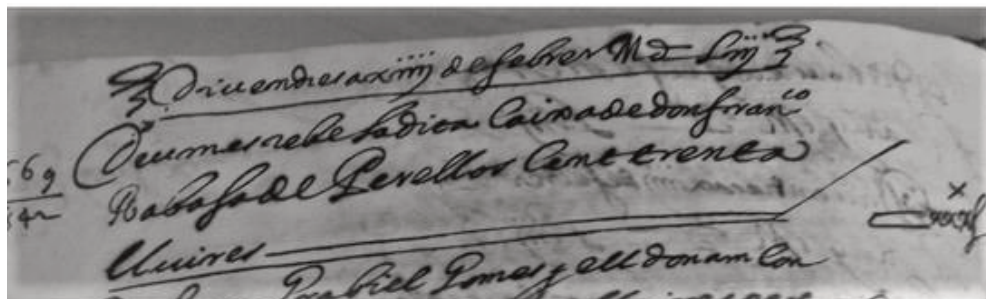 Diuendres a xiiij de febrer M d Liij
Deu mes rebe la dita Caixa de don fran.co
Rabasa de Perellos Cent trenta
lliures
Grabiel Gomes y ell donam lon